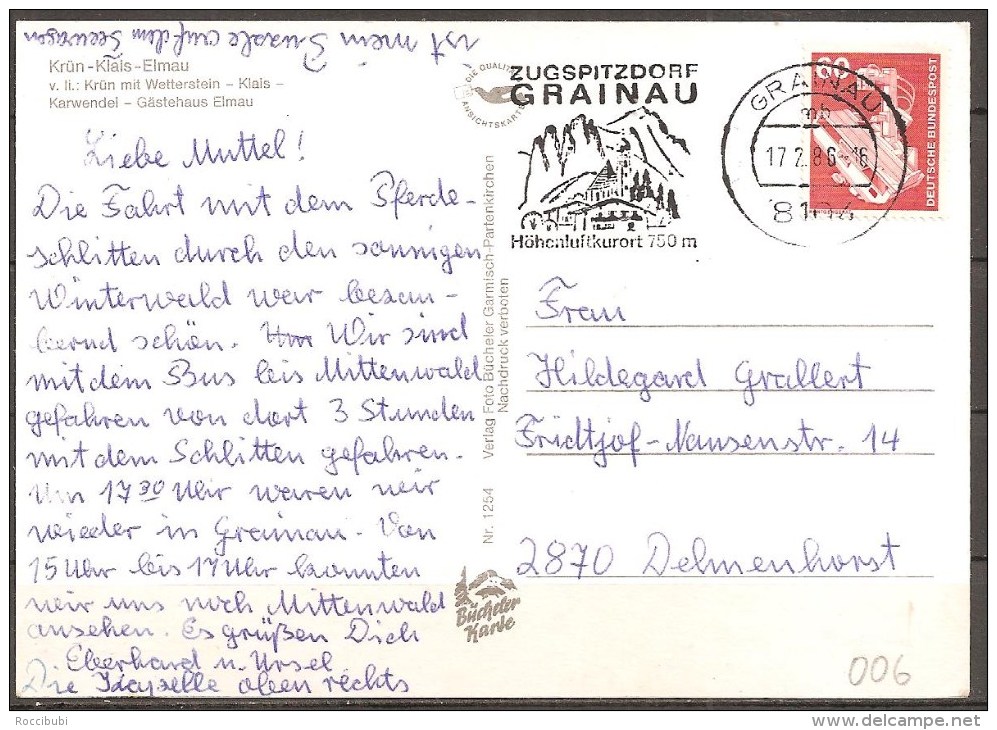 ist mein auf dem
Krün-Klais-Elmau
v. li.: Krün mit Wetterstein – Klais –
Karwendel – Gästehaus Elmau
Liebe Muttel!
Die Fahrt mit dem Pferde-
schlitten durch den sonnigen
Winterwald war bezau-
bernd schön. Wir sind
mit dem Bus bis Mittenwald
gefahren von dort 3 Stunden
mit dem Schlitten gefahren.
Um 17 30 Uhr waren wir
wieder in Grainau. Von
15 Uhr bis 17 Uhr konnten
wir uns noch Mittenwald
ansehen. Es grüßen Dich
Eberhard u. Ursel.
Die Kapelle oben rechts
DIE QUALITÄTS
ANSICHTSKARTE
Verlag Foto Bücheler Garmisch-Partenkirchen
Nachdruck verboten
Nr. 1254
Bücheler
Karte
ZUGSPITZDORF
GRAINAU
Höhenluftkurort 750 m
GRAINAU
mb
17.2.86-16
8104
60
DEUTSCHE BUNDESPOST
Frau
Hildegard Grallert
Fridtjof-Nansenstr. 14
2870 Delmenhorst
006
Roccibubi
delcampe.net